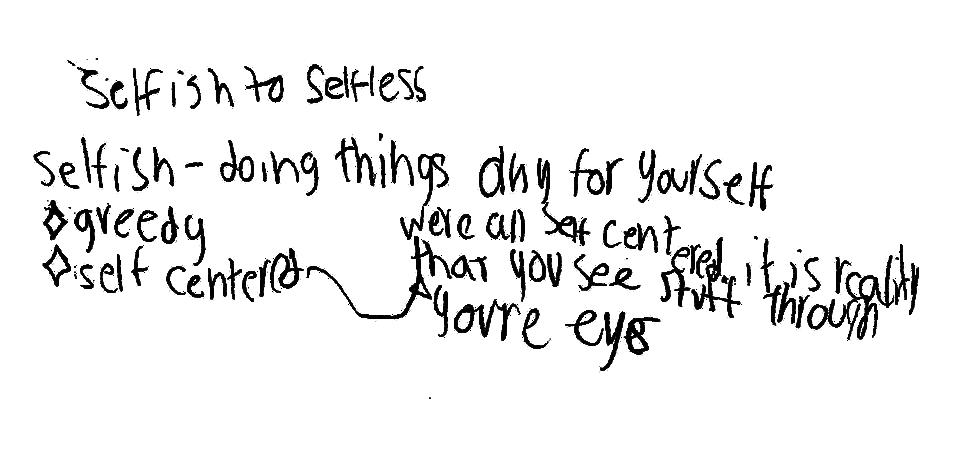 selfish to selfless
selfish - doing things only for yourself
greedy
self centered
were all self centered. it is reality
that you see stuff through
youre eyes